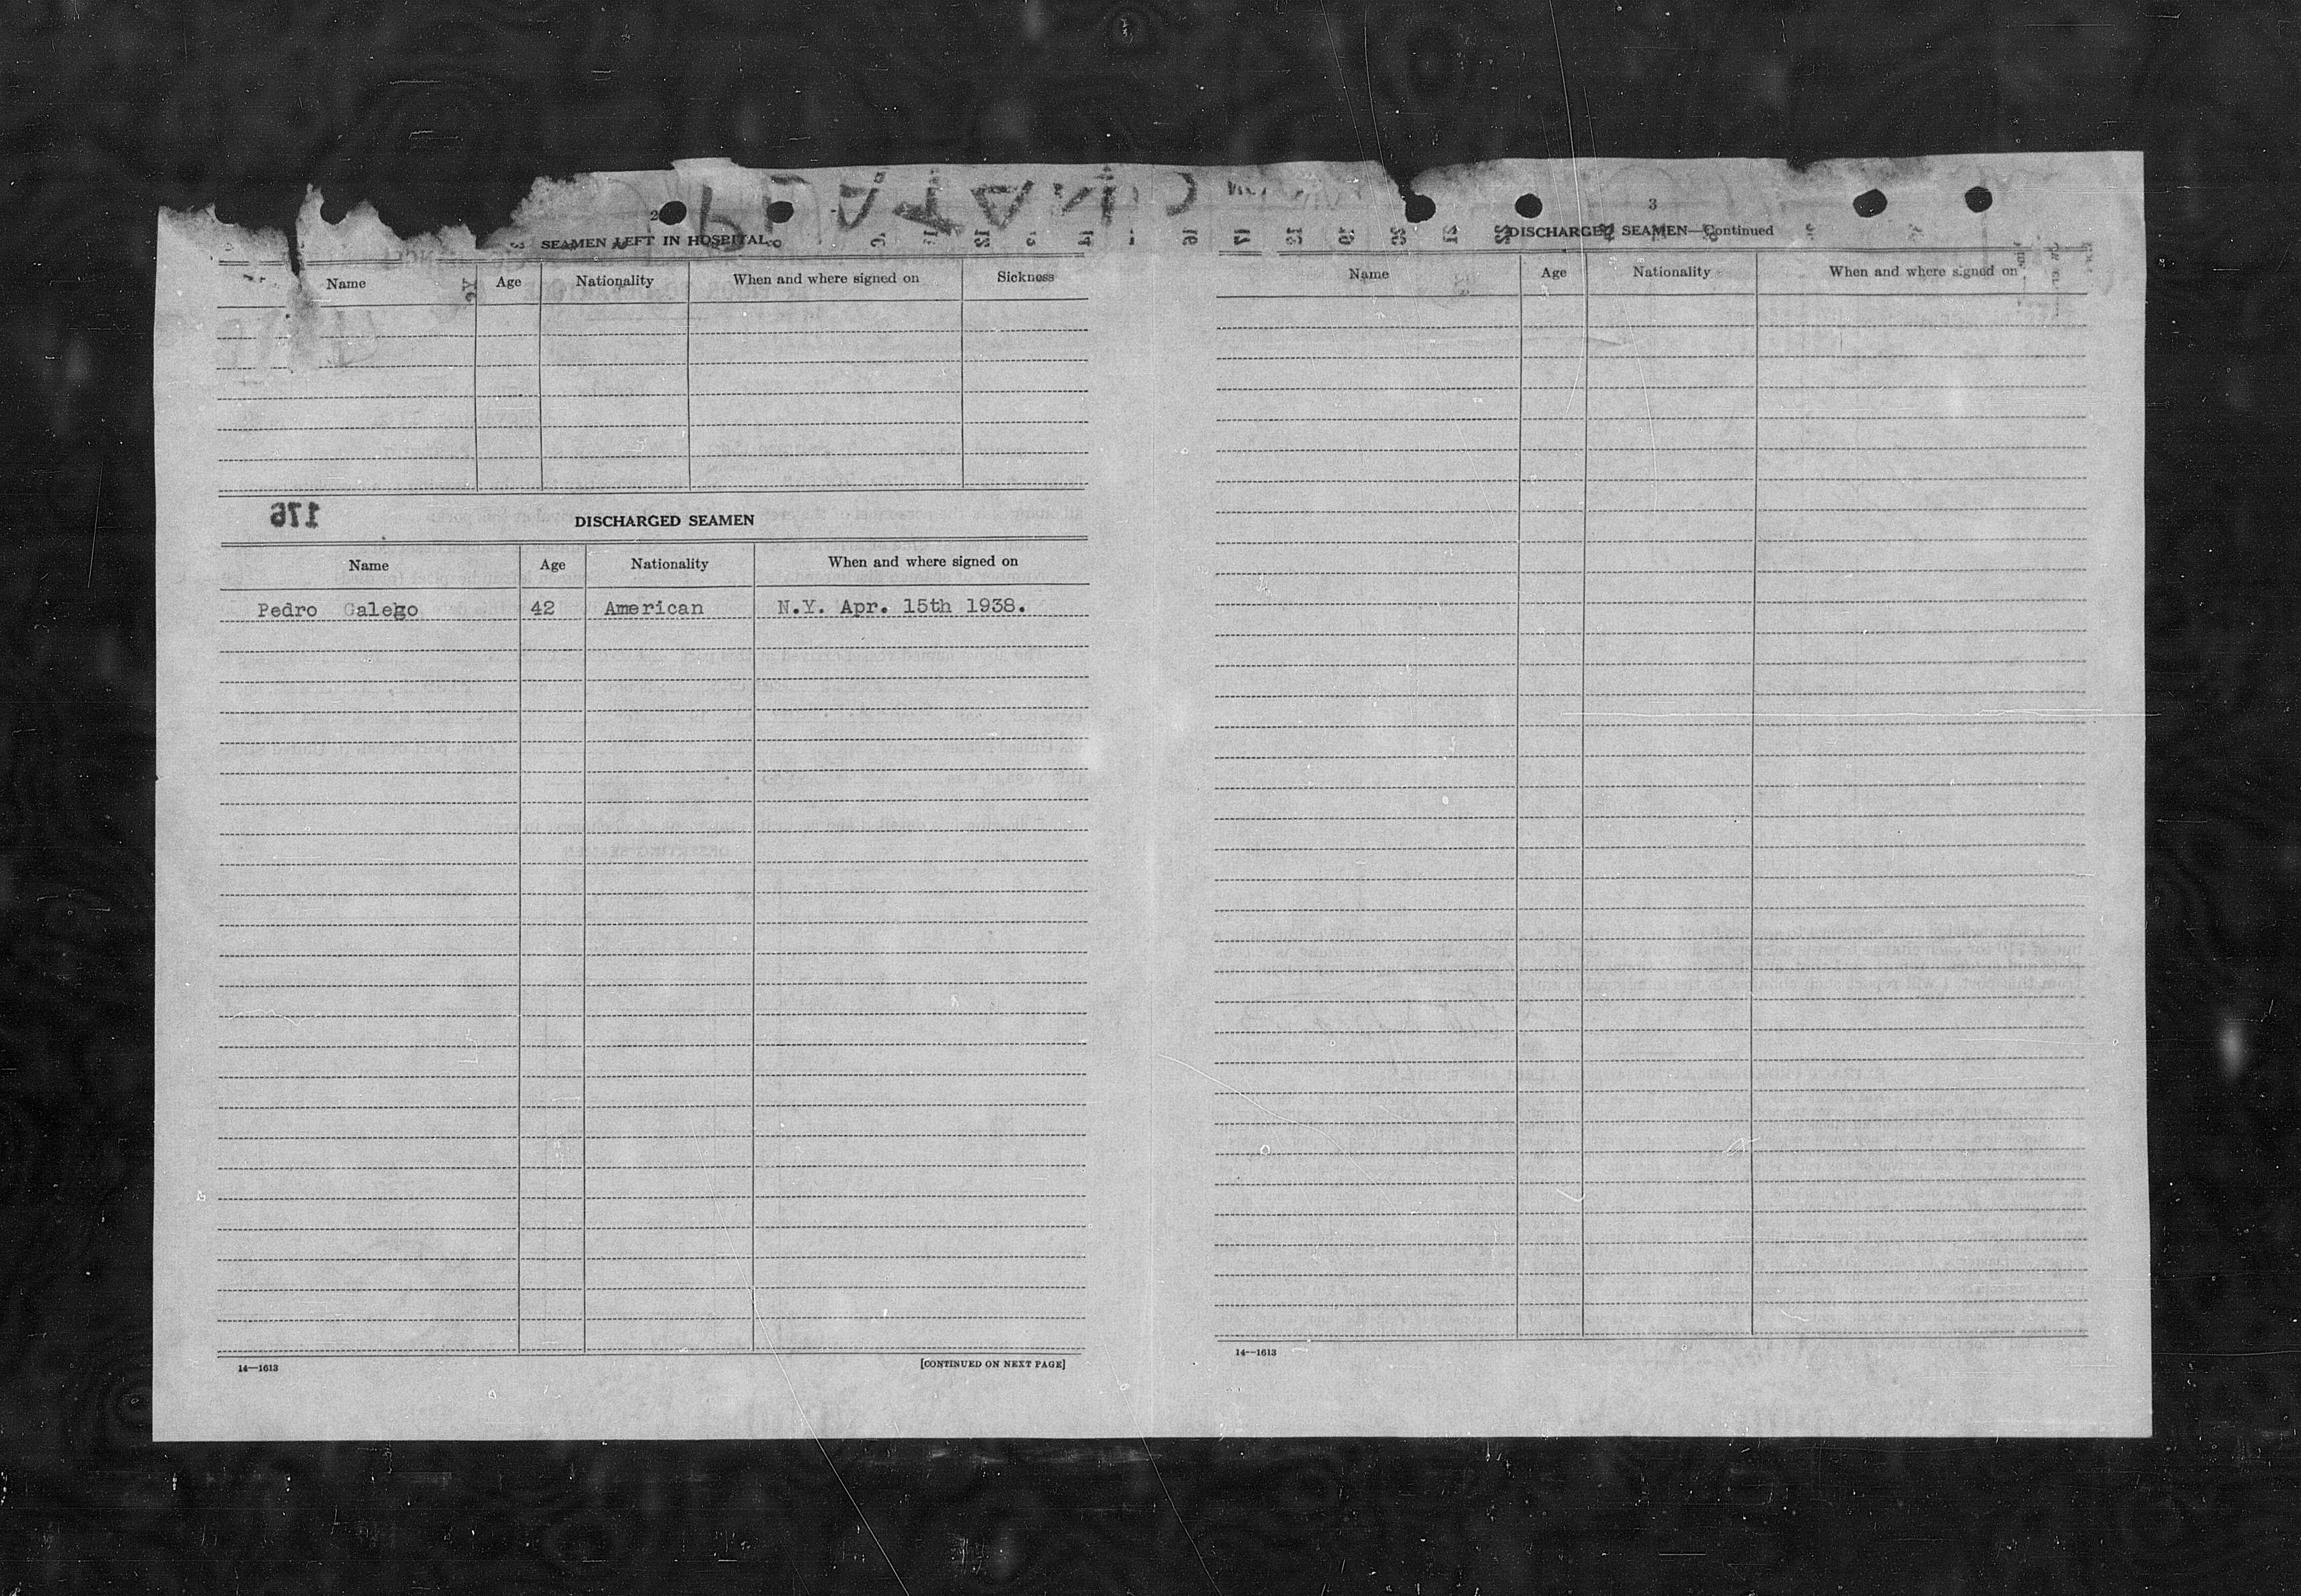 2
SEAMEN LEFT IN HOSPITAL
Name Age Nationality When and where signed on Sickness
176
DISCHARGED SEAMEN
Name Age Nationality When and where signed on
Pedro Galego 42 American N.Y. Apr. 15th 1938.
14—1613 [CONTINUED ON NEXT PAGE]
3
DISCHARGED SEAMEN—Continued
Name Age Nationality When and where signed on
14—1613